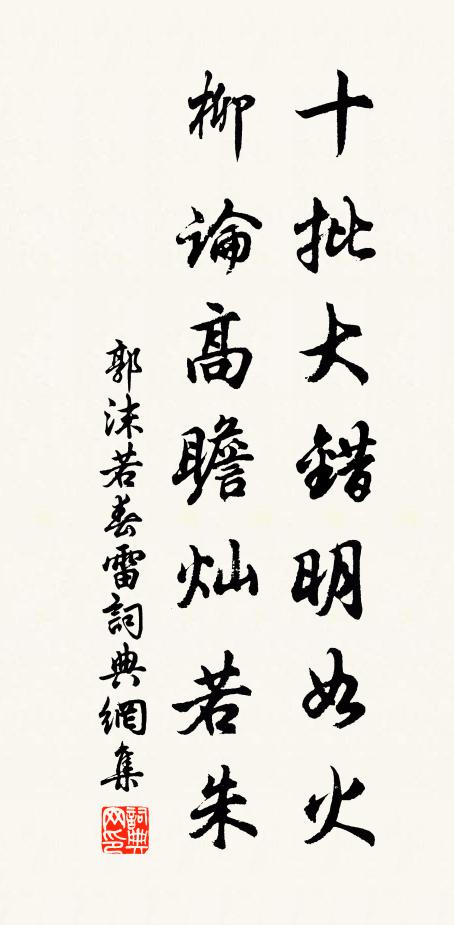 十批大錯明如火
柳論高瞻灿若朱
郭沫若春雷詞典網集
詞典网印